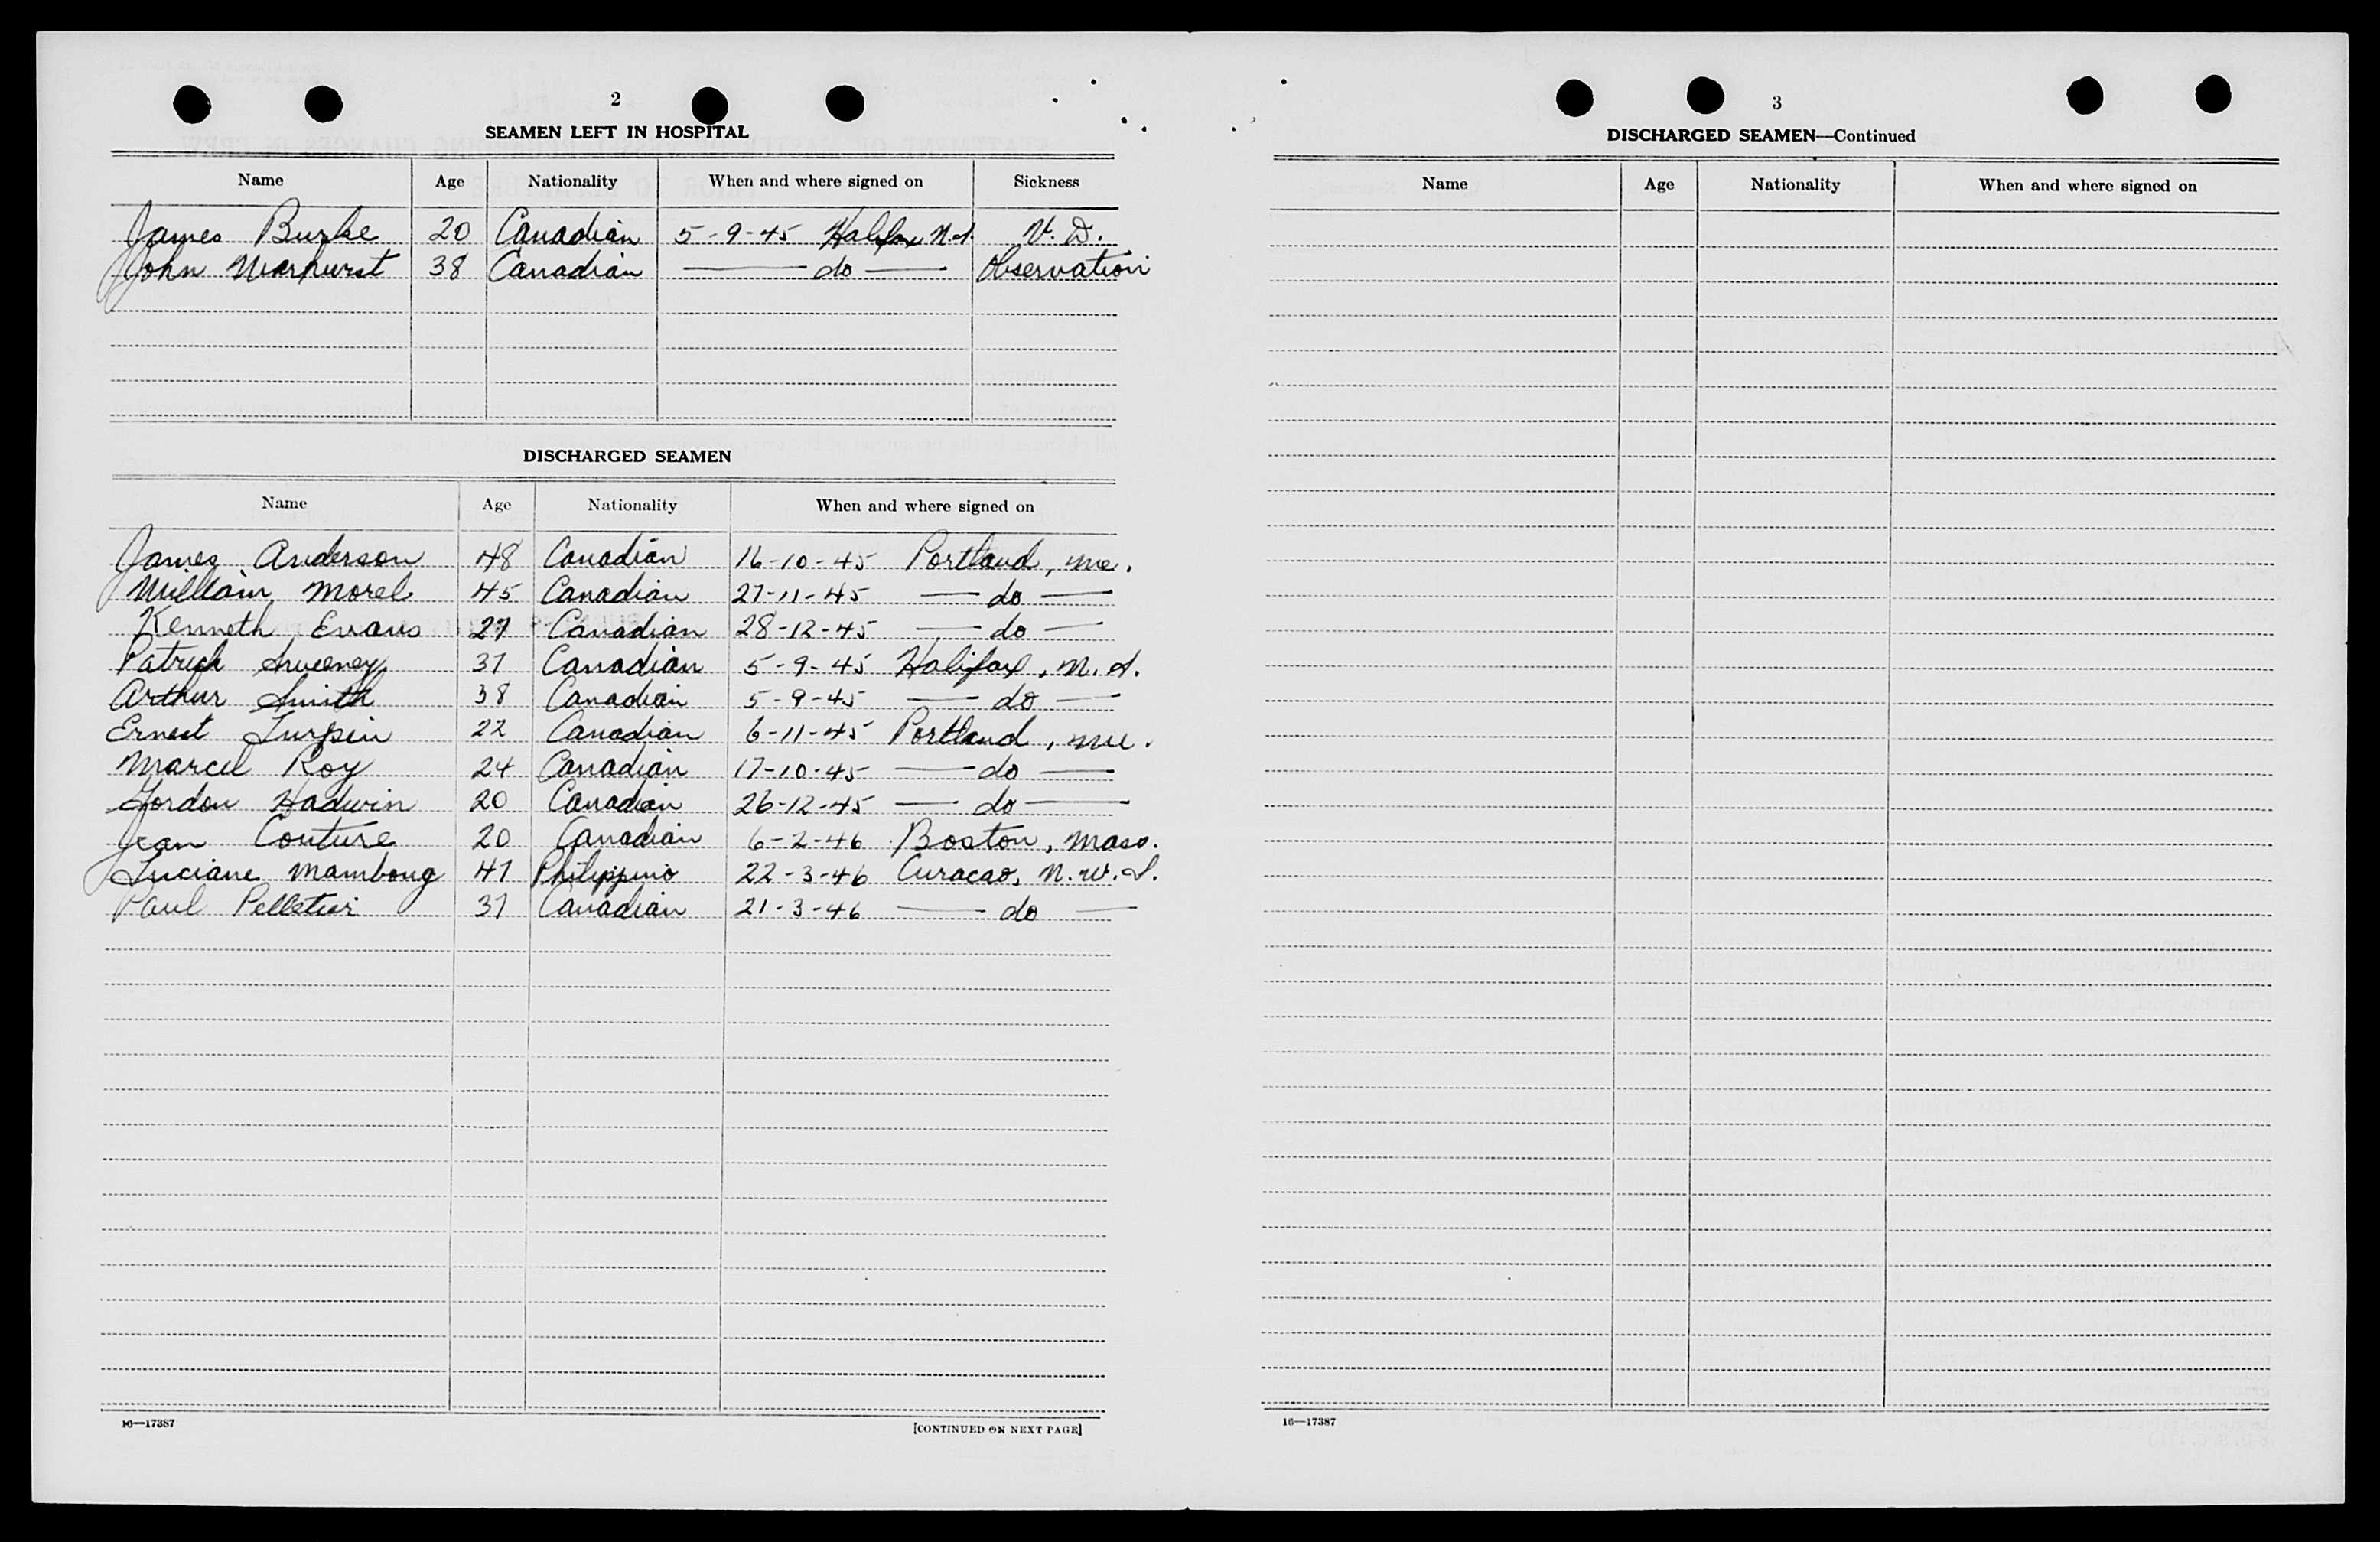 2
SEAMEN LEFT IN HOSPITAL
Name Age Nationality When and where signed on Sickness
James Burke 20 Canadian 5-9-45 Halifax N.S. V.D.
John Warhurst 38 Canadian — do — Observation
DISCHARGED SEAMEN
Name Age Nationality When and where signed on
James Anderson 48 Canadian 16-10-45 Portland, me.
William Morel 45 Canadian 27-11-45 — do —
Kenneth Evans 27 Canadian 28-12-45 — do —
Patrick Sweeney 37 Canadian 5-9-45 Halifax, N.S.
Arthur Smith 38 Canadian 5-9-45 — do —
Ernest Turpin 22 Canadian 6-11-45 Portland, me.
Marcel Roy 24 Canadian 17-10-45 — do —
Gordon Hadwin 20 Canadian 26-12-45 — do —
Jean Couture 20 Canadian 6-2-46 Boston, Mass.
Luciane Mamboug 47 Philippino 22-3-46 Curacao, N.W.I.
Paul Pelletier 37 Canadian 21-3-46 — do —
16—17387 [CONTINUED ON NEXT PAGE]
3
DISCHARGED SEAMEN—Continued
Name Age Nationality When and where signed on
16—17387